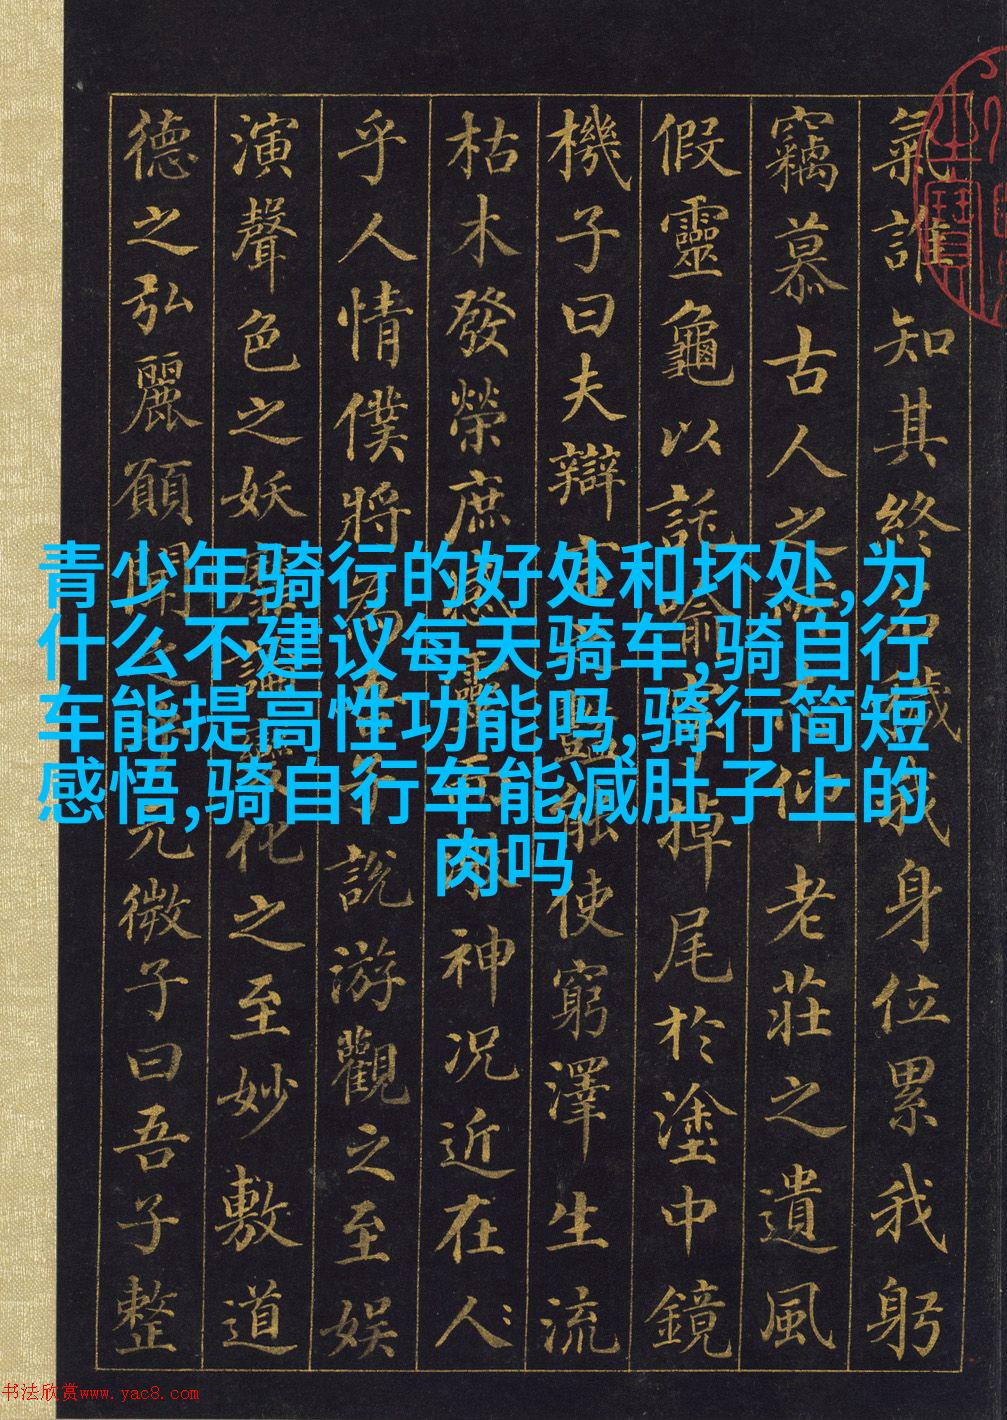 氣誰知其終名穢我身位累我躬
竊慕古人之所志仰老莊之遺風
假靈龜以託喻寧掉尾於塗中鏡
機子曰夫辯言之豔能使窮澤生流
枯木發榮庶感靈而激神況近在人
乎人情僕將為吾子說游觀之至娛
演聲色之妖靡論變化之至妙敷道
德之弘麗願聞之乎玄微子曰吾子整
青少年骑行的好处和坏处,为
什么不建议每天骑车,骑自行
车能提高性功能吗,骑行简短
感悟,骑自行车能减肚子上的
肉吗
书法欣赏www.yac8.com